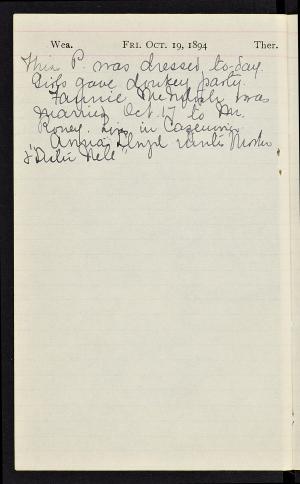 Wea. FRI. OCT. 19, 1894 Ther.
P. was dressed to-day.
Girls gave donkey party.
Fannie was
married Oct. 17 to Mr.
Roney. Live in
Annie Lloyd
& Nell"